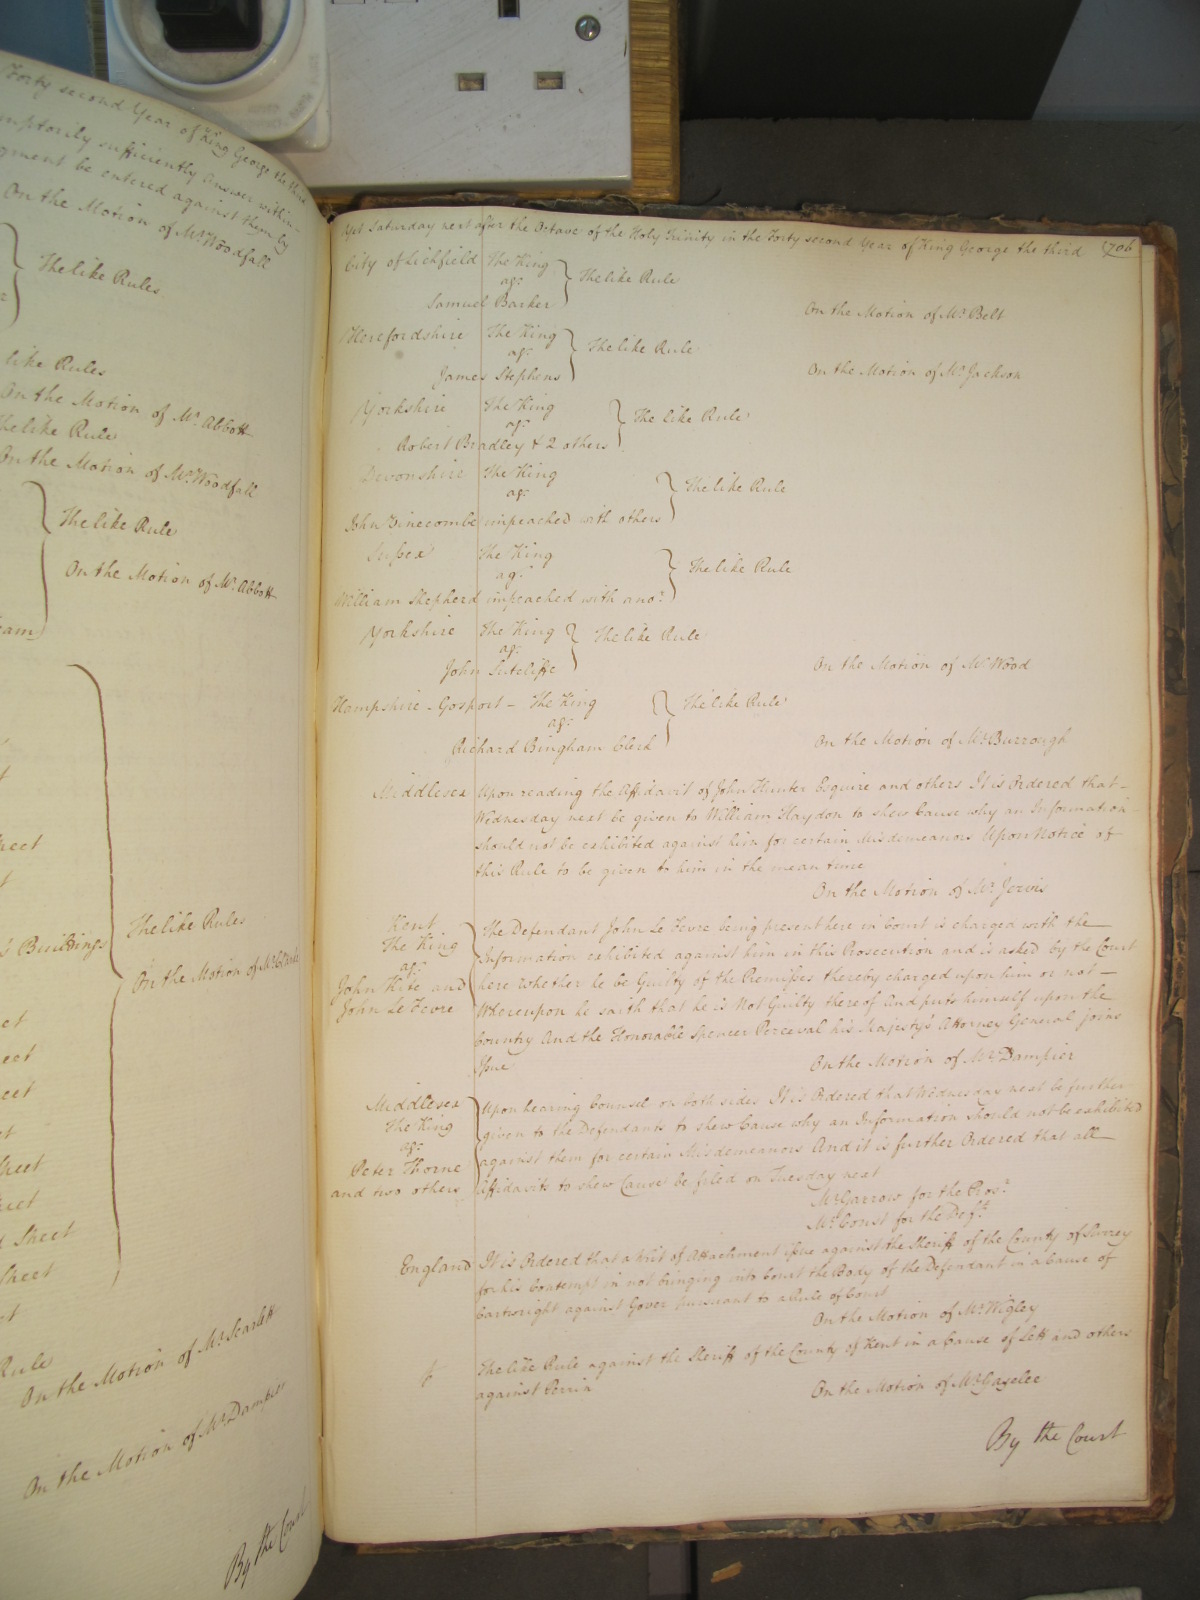 Forty second Year of King George the third
mptorily sufficiently Answer within
gment be entered against them by
On the Motion of Mr. Woodfall
The like Rules
like Rules
On the Motion of Mr. Abbott
The like Rule
On the Motion of Mr. Woodfall
The like Rule
On the Motion of Mr. Abbott
eam
reet
s Buildings
The like Rules
On the Motion of Mr.
eet
eet
Street
reet
d Street
Street
Rule
On the Motion of Mr. Scarlett
On the Motion of Mr. Dampier
By the Court
Yet Saturday next after the Octave of the Holy Trinity in the Forty second Year of King George the third 706
City of Lichfield The King
agt. The like Rule
Samuel Barker
On the Motion of Mr. Belt
Herefordshire The King
agt. The like Rule
James Stephens
On the Motion of Mr. Jackson
Yorkshire The King
agt. The like Rule
Robert Bradley & 2 others
Devonshire The King
agt. The like Rule
John Zinecombe impeached with others
Sussex The King
agt. The like Rule
William Shepherd impeached with anor.
Yorkshire The King The like Rule
agt.
John Sutcliffe
On the Motion of Mr. Wood
Hampshire - Gosport - The King The like Rule
agt.
Richard Bingham Clerk
On the Motion of Mr. Burrough
Middlesex Upon reading the Affidavit of John Hunter Esquire and others It is Ordered that
Wednesday next be given to William Haydon to shew Cause why an Information
should not be exhibited against him for certain Misdemeanors Upon Notice of
this Rule to be given to him in the mean time
On the Motion of Mr. Jervis
Kent The Defendant John Le Fevre being present here in Court is charged with the
The King Information exhibited against him in this Prosecution and is asked by the Court
agt.
John Kite and here whether he be Guilty of the Premisses thereby charged upon him or not
John Le Fevre Whereupon he saith that he is Not Guilty thereof And puts himself upon the
Country And the Honorable Spencer Perceval his Majesty's Attorney General joins
Issue
On the Motion of Mr. Dampier
Middlesex Upon hearing Counsel on both sides It is Ordered that Wednesday next be further
The King given to the Defendants to shew Cause why an Information should not be exhibited
agt.
Peter Thorne against them for certain Misdemeanors And it is further Ordered that all
and two others Affidavits to shew Cause be filed on Tuesday next
Mr. Garrow for the Prosr.
Mr. Const for the Deft.
England It is Ordered that a Writ of Attachment issue against the Sheriff of the County of Surrey
for his Contempt in not bringing into Court the Body of the Defendant in a Cause of
Cartwright against Gover pursuant to a Rule of Court
On the Motion of Mr. Wigley
The like Rule against the Sheriff of the County of Kent in a Cause of Lett and others
against Perrin
On the Motion of Mr. Gaselee
By the Court